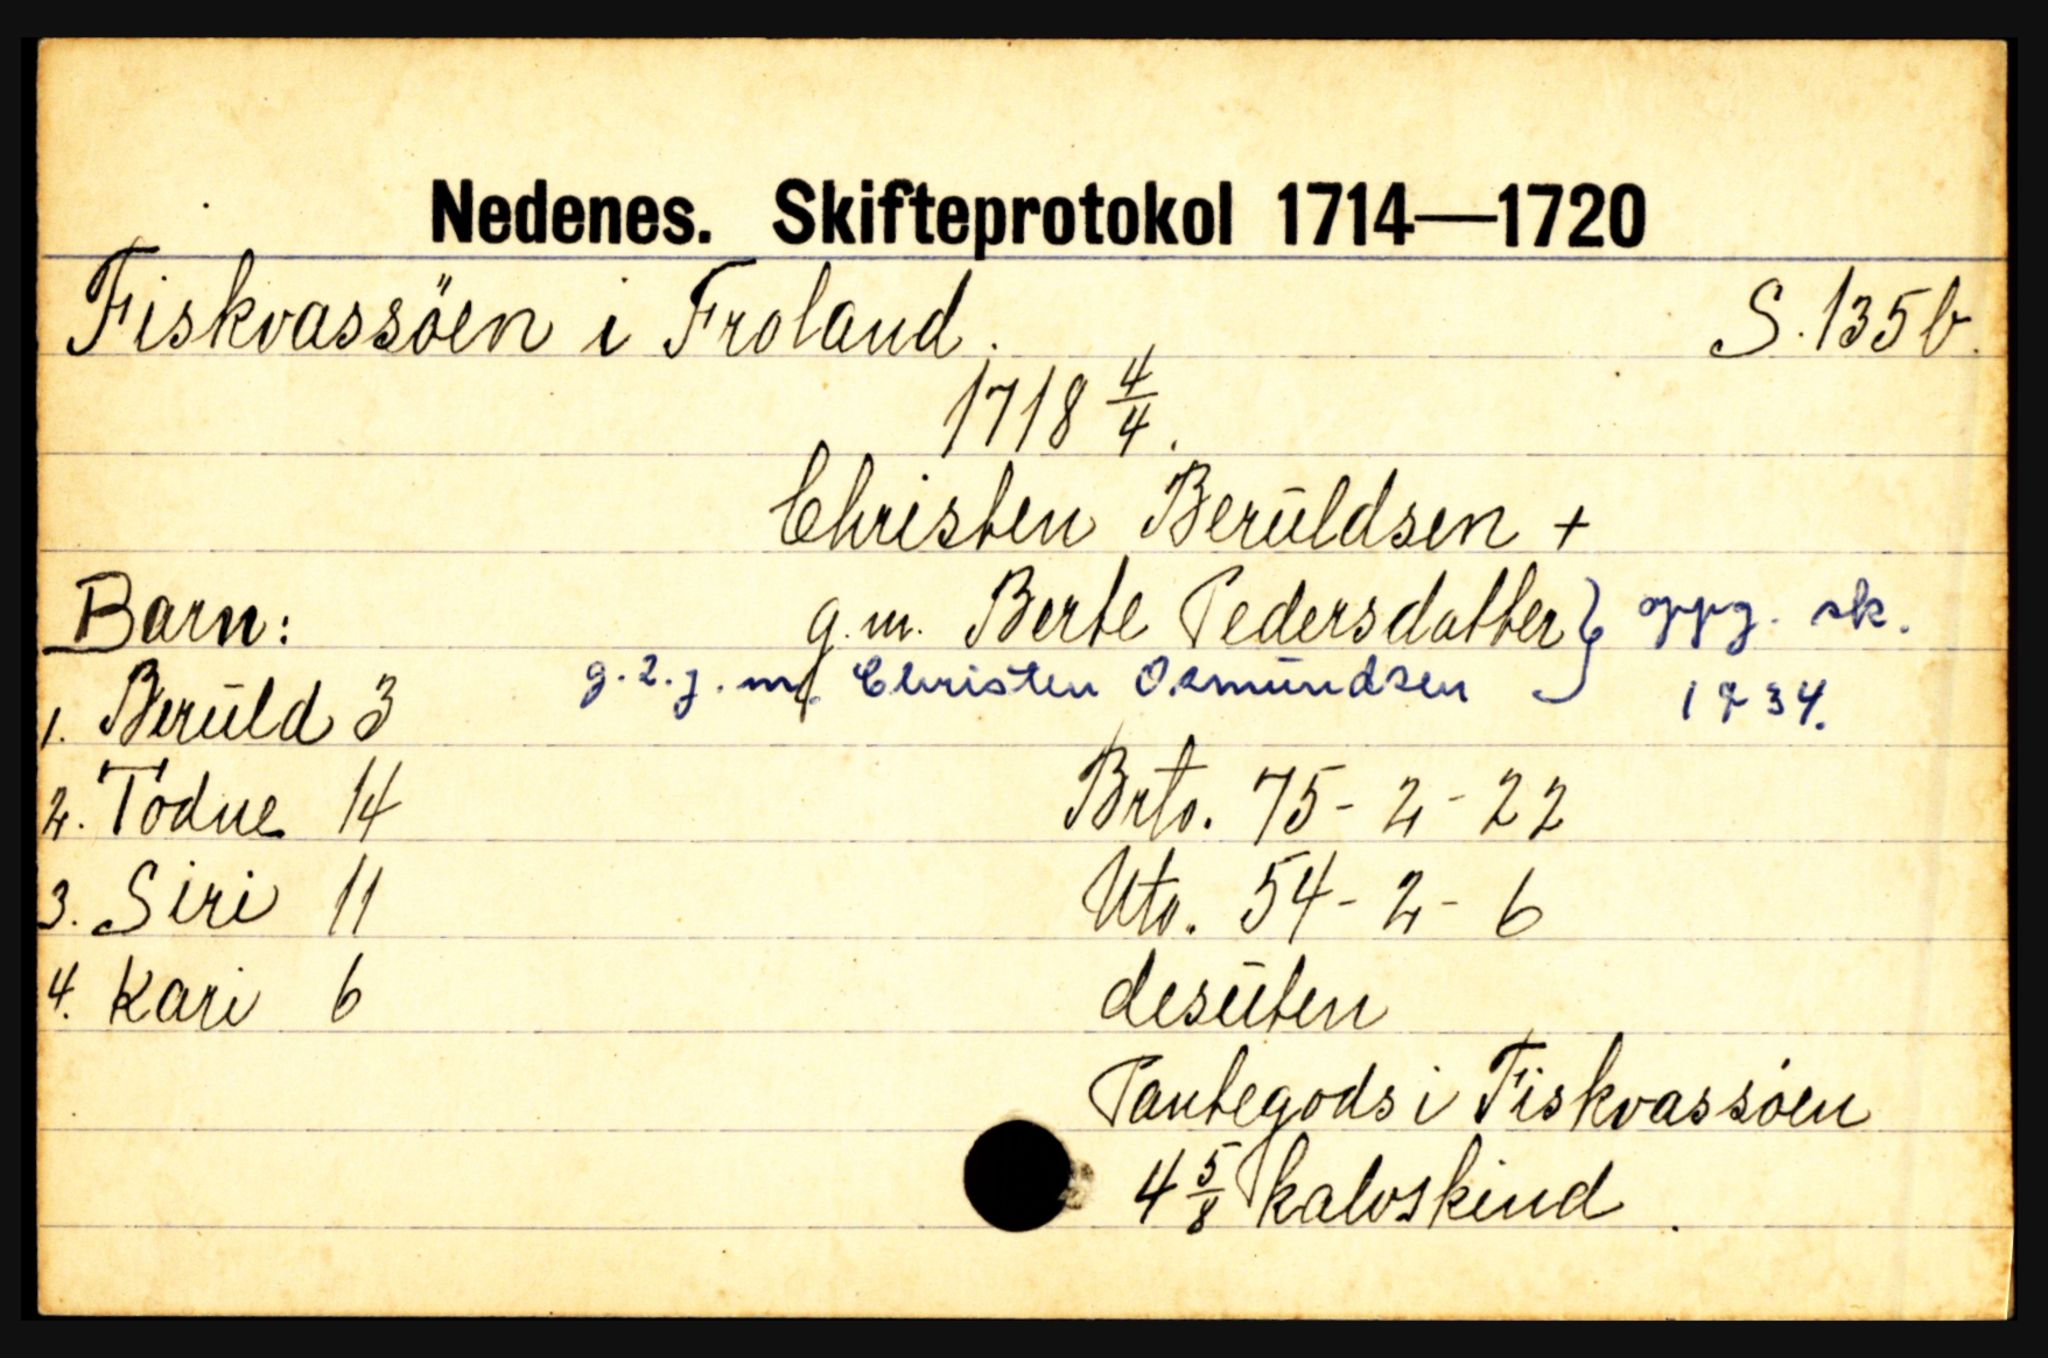 Nedenes. Skifteprotokol 1714—1720
Fiskvassöen i Froland. S. 135b.
1718 4/4.
Christen Berŭldsen +
Barn: g.m. Berte Pedersdatter } oppg. sk.
g. 2. g. m. Christen Osmŭndsen 1734.
1. Berŭld 3
2. Todne 14 Brto. 75-2-22
3. Siri 11 Uto. 54-2-6
4. Kari 6 desŭten
Pantegods i Fiskvassöen
4 5/8 kalvskind.